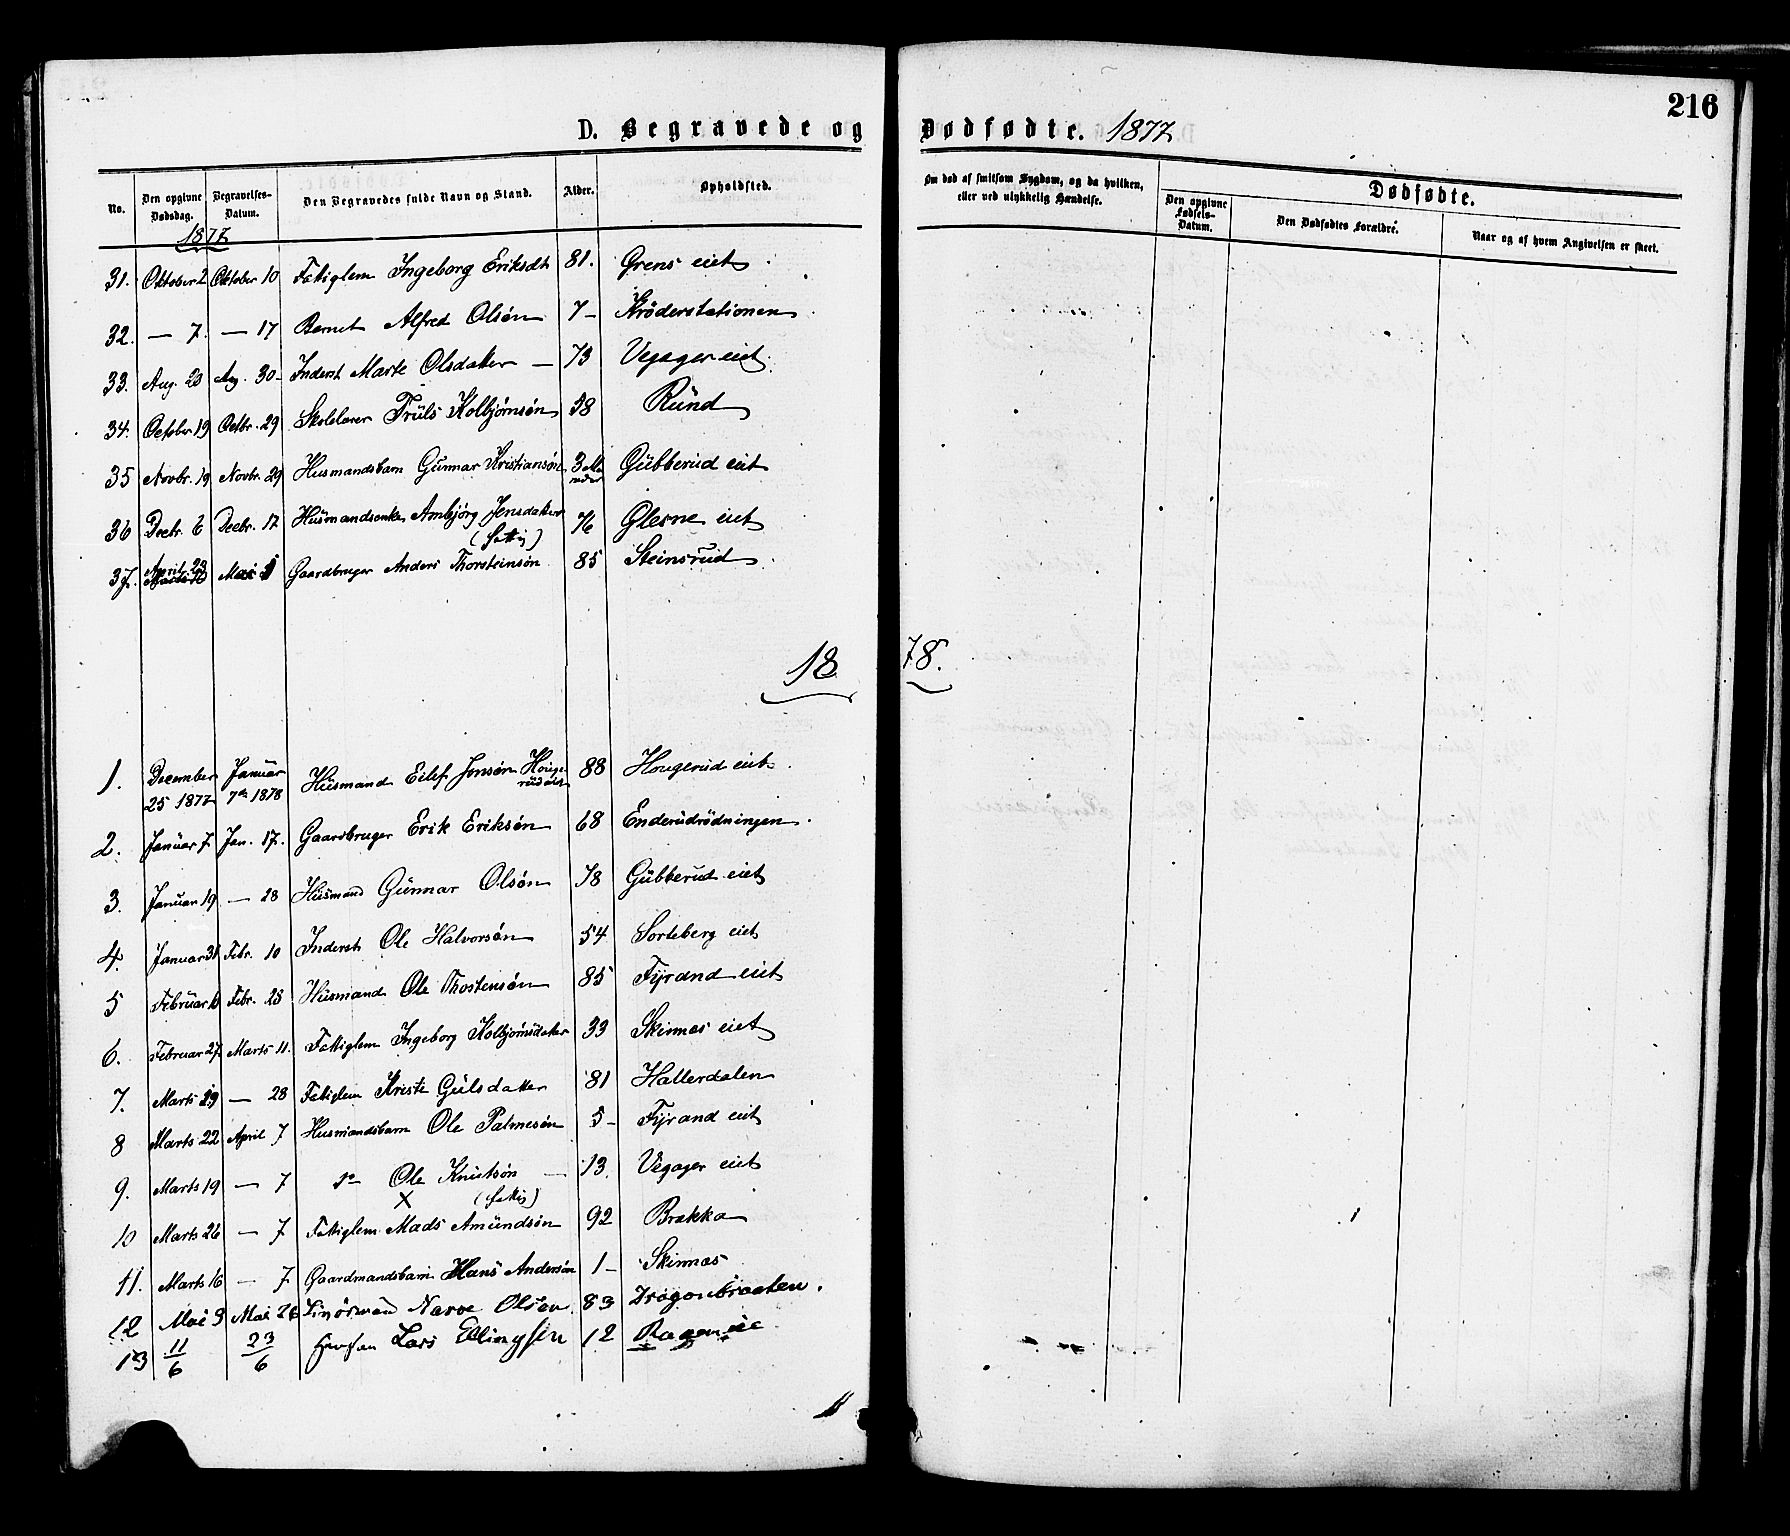 216
D. Begravede og Dødfødte. 1877
No. Den opgivne Dødsdag. Begravelses-Datum. Den Begravedes fulde Navn og Stand. Alder. Opholdsted. Om død af smitsom Sygdom, og da hvilken, eller ved ulykkelig Hændelse. Dødfødte.
Den opgivne Fødsels-Datum. Den Dødfødtes Forældre. Naar og af hvem Angivelsen er skeet.
1877
31. Oktober 2 Oktober 10 Fattiglem Ingeborg Eriksdt 81. Grens eiet
32. — 7. — 17 Barnet Alfred Olsøn 7 – Krøderstationen
33. Aug. 20 Aug. 30 – Inderst Marte Olsdatter — 73 Vegager eiet
34. October 19 Octbr. 29 Skolelærer Truls Kolbjørnsøn 58 Rund
35 Novbr. 19 Novbr. 29 Husmandsbarn Gunnar Kristiansøn 3 Maaneder Gubberud eiet
36 Decbr. 6 Decbr. 17 Husmandsenke Arnbjørg Jensdatter 76 Glesne eiet
(fattig)
37. April 28 Mai 5 Gaardbruger Anders Thorsteinsøn 85 Steinsrud
1878.
1. December 25 1877 Januar 7de 1878 Husmand Eilef Jonsøn Hougerudeiet 88 Hougerud eiet
2. Januar 7. Jan. 17. Gaardbruger Erik Eriksøn 68 Enderudrødningen.
3. Januar 19 — 28 Husmand Gunnar Olsøn 78 Gubberud eiet
4. Januar 31 Febr. 10 Inderst Ole Halvorsøn 54 Sorteberg eiet
5 Februar Febr. 23 Husmand Ole Thostensøn 85 Fyrand eiet
6. Februar 27. Marts 11. Fattiglem Ingeborg Kolbjørnsdatter 33 Skinnes eiet
7. Marts 19 — 28 Fattiglem Kristi Gulsdatter 81 Hallerdalen
8 Marts 22 April 7 Husmandsbarn Ole Palmesøn 5 – Fyrand eiet
9. Marts 19 — 7 do Ole Knutsøn — 13. Vegager eiet
X (fattig)
10 Marts 26 — 7 Fattiglem Mads Amundsøn 92 Brækka
11. Marts 16 — 7 Gaardmandsbarn Hans Andersøn 1 – Skinnes
12 Mai 3 Mai 26 Narve Olsen. 83 Dragonbraaten.
13 11/6 23/6 Lars Ellingsen 12